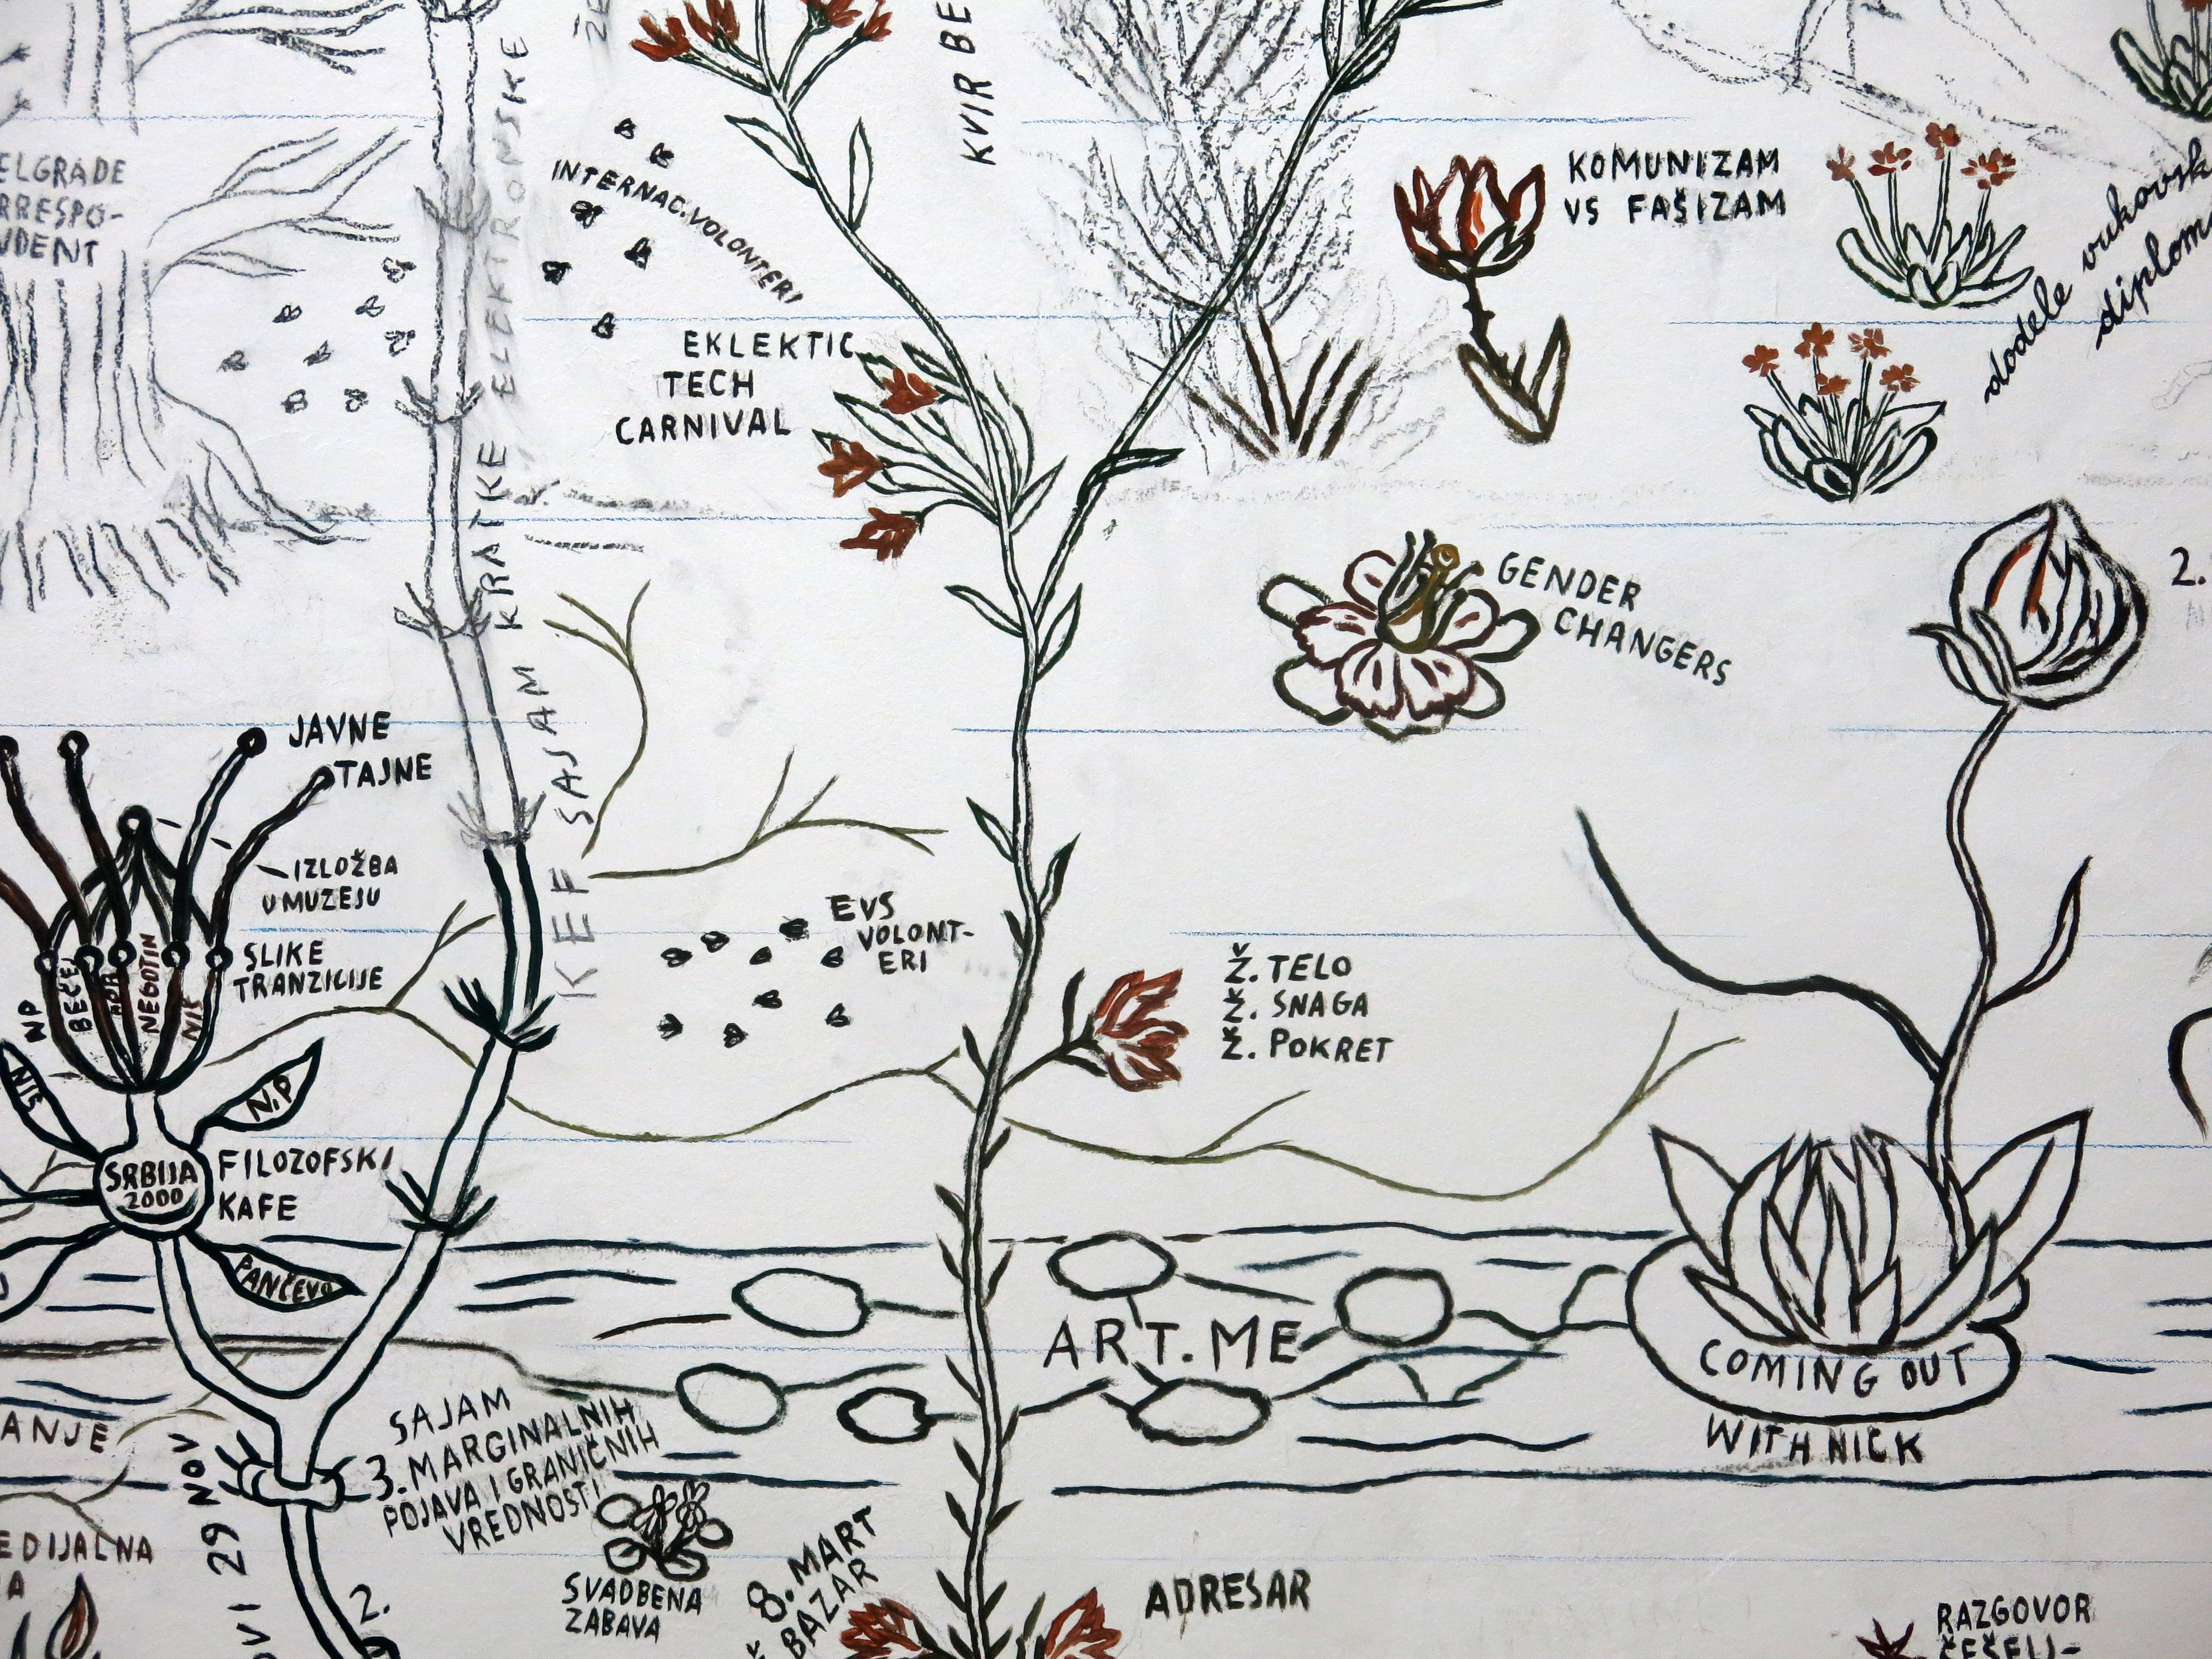 KVIR BE
ELGRADE
RRESPO-
NDENT
KEF SAJAM KRATKE ELEKTRONSKE
INTERNAC. VOLONTERI
EKLEKTIC
TECH
CARNIVAL
KOMUNIZAM
VS FAŠIZAM
dodele vukovsk
diplom
GENDER
CHANGERS
2.
JAVNE
TAJNE
IZLOŽBA
U MUZEJU
SLIKE
TRANZICIJE
NP
BEČEJ
BOR
NEGOTIN
NIŠ
NIŠ
N.P
SRBIJA
2000
FILOZOFSKI
KAFE
PANČEVO
EVS
VOLONT-
ERI
Ž. TELO
Ž. SNAGA
Ž. POKRET
ART.ME
COMING OUT
WITH NICK
ANJE
OVI 29 NOV
SAJAM
3. MARGINALNIH
POJAVA I GRANIČNIH
VREDNOSTI
2.
EDIJALNA
A
SVADBENA
ZABAVA
8. MART
Ž. BAZAR
ADRESAR
RAZGOVOR
ČEŠELJ-